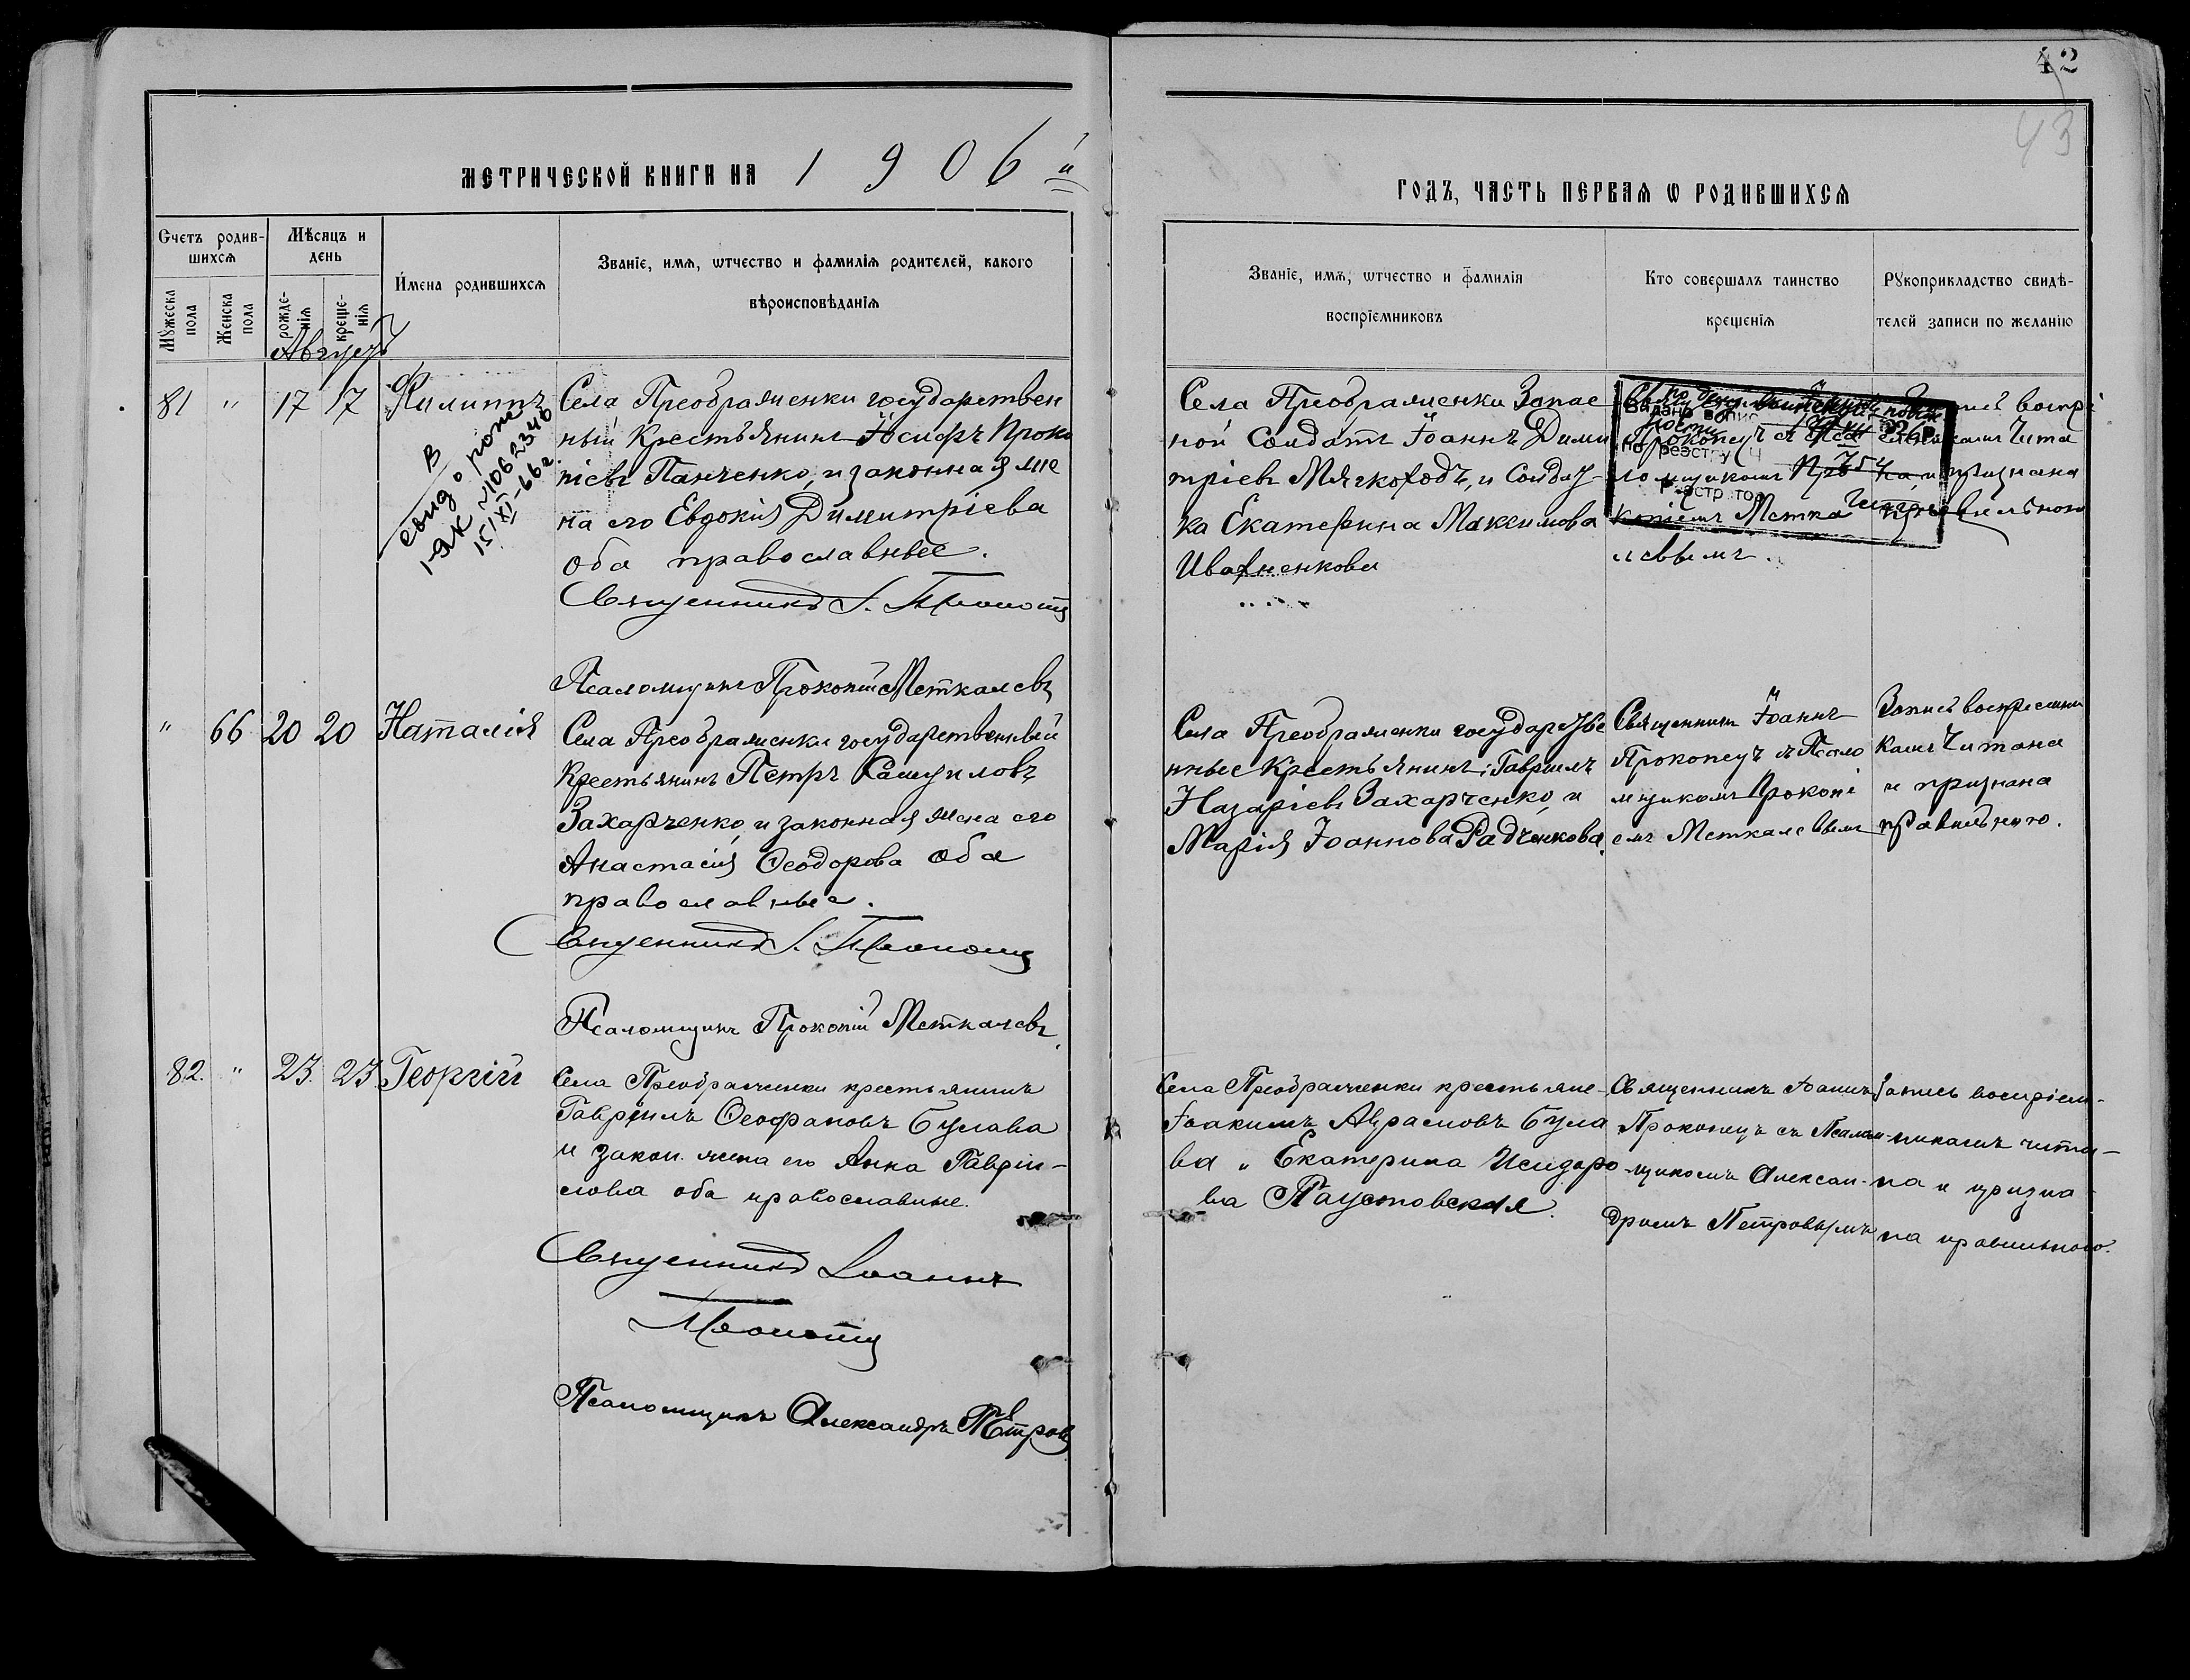 42
43
МЕТРИЧЕСКОЙ КНИГИ НА 1906й
ГОДЪ, ЧАСТЬ ПЕРВАѦ Ѡ РОДИВШИХСѦ
Счетъ родив-
шихсѧ
Мѣсяцъ и
день
Мужеска
пола
Женска
пола
рожде-
нія
креще-
нія
Имена родившихсѧ
Званіе, имѧ, ѡтчество и фамиліѧ родителей, какого
вѣроисповѣданіѧ
Званіе, имѧ, ѡтчество и фамиліѧ
воспріемниковъ
Кто совершалъ таинство
крещеніѧ
Рукоприкладство свидѣ-
телей записи по желанію
Августъ
81 " 17 17 Филиппъ
В
свид о рож
1-ЯК №1062340
15/XI-66г.
Села Преображенки государствен
ный Крестьянинъ Іосифъ Проко
піевъ Панченко, и законная же
на его Евдокія Димитріева
оба православные.
Священникъ І. Прокопец
Псаломщикъ Прокопій Меткалевъ
Села Преображенки Запас
ной Солдатъ Іоаннъ Дими
тріевъ Мягкоходъ, и Солдат-
ка Екатерина Максимова
Ивахненкова
Прокопец
ломщикомъ Про
копіемъМетка
левымъ.
воспрі
емниками Чита
на, и признана
правильною
" 66 20 20 Наталія
Села Преображенки государственный
Крестьянинъ Петръ Самуиловъ
Захарченко, и законная жена его
Анастасія Ѳеодорова оба
православные.
Священникъ І. Прокопец
Псаломщикъ Прокопій Меткалевъ
Села Преображенки государстве
нные Крестьянинъ: Гавриилъ
Назаріевъ Захарченко, и
Марія Іоаннова Радченкова.
Священникъ Іоаннъ
Прокопецъ съ Псало
мщикомъ Прокопі
емъ Меткалевымъ
Запись воспреемни
ками Читана
и признана
правильною.
82. " 23. 23 Георгій
Села Преображенки крестьянинъ
Гавріилъ Ѳеофановъ Булава
и закон. жена его Анна Гавріи-
лова оба православные.
Священникъ Іоаннъ
Прокопец
Псаломщикъ Александръ Петровъ
Села Преображенки крестьяне-
Іоакимъ Аврамовъ Була
ва " Екатерина Исидоро
ва Паустовская.
Священникъ Іоаннъ
Прокопецъ съ Псалом-
щикомъ Алексан-
дромъ Петровымъ
Запись воспріем-
никами чита-
на и призна
на правильною.